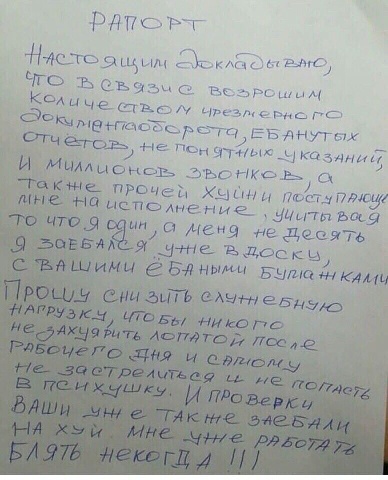 РАПОРТ
НАСТОЯЩИМ ДОКЛАДЫВАЮ,
ЧТО В СВЯЗИ С ВОЗРОШИМ
КОЛИЧЕСТВОМ ЧРЕЗМЕРНОГО
ДОКУМЕНТАОБОРОТА, ЕБАНУТЫХ
ОТЧЁТОВ, НЕ ПОНЯТНЫХ УКАЗАНИЙ,
И МИЛЛИОНОВ ЗВОНКОВ, А
ТАКЖЕ ПРОЧЕЙ ХУЙНИ ПОСТУПАЮЩЕ
МНЕ НА ИСПОЛНЕНИЕ, УЧИТЫВАЯ
ТО ЧТО Я ОДИН, А МЕНЯ НЕ ДЕСЯТЬ
Я ЗАЕБАЛСЯ УЖЕ В ДОСКУ,
С ВАШИМИ ЁБАНЫМИ БУМАЖКАМИ
ПРОШУ СНИЗИТЬ СЛУЖЕБНУЮ
НАГРУЗКУ, ЧТОБЫ НИКОГО
НЕ ЗАХУЯРИТЬ ЛОПАТОЙ ПОСЛЕ
РАБОЧЕГО ДНЯ И САМОМУ
НЕ ЗАСТРЕЛИТЬСЯ И НЕ ПОПАСТЬ
В ПСИХУШКУ. И ПРОВЕРКИ
ВАШИ УЖЕ ТАКЖЕ ЗАЕБАЛИ
НА ХУЙ. МНЕ УЖЕ РАБОТАТЬ
БЛЯТЬ НЕКОГДА !!!